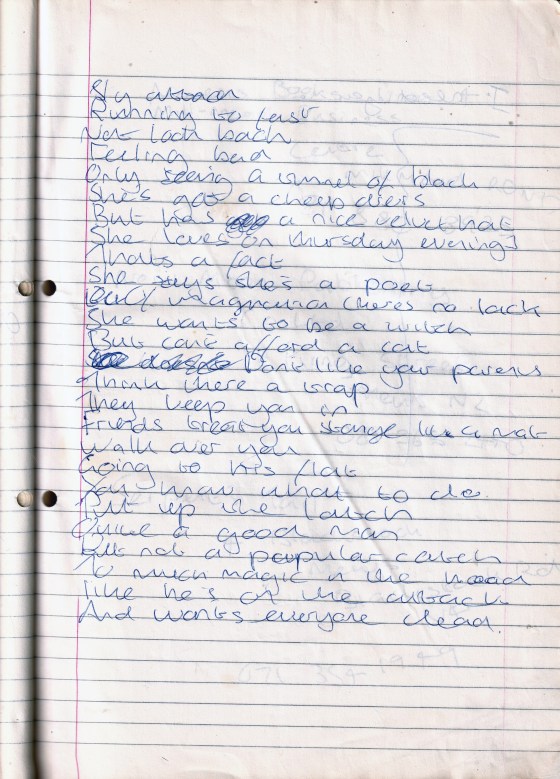 Sly attack
Running to fast
Not look back
Feeling bad
Only seeing a tunnel of black
She's got a cheap dress
But has a nice velvet hat
She loves on thursday evenings
Thats a fact
She says she's a poet
Of imagination theres no lack
She wants to be a witch
But cant afford a cat
Dont like your parents
Think there a trap
They keep you in
Friends treat you strange like a mat
Walk over you
Going to his flat
You know what to do.
Put up the latch
Quite a good man
But not a popular catch
To much magic in the head
like he's on the attack
And wants everyone dead.
071 354